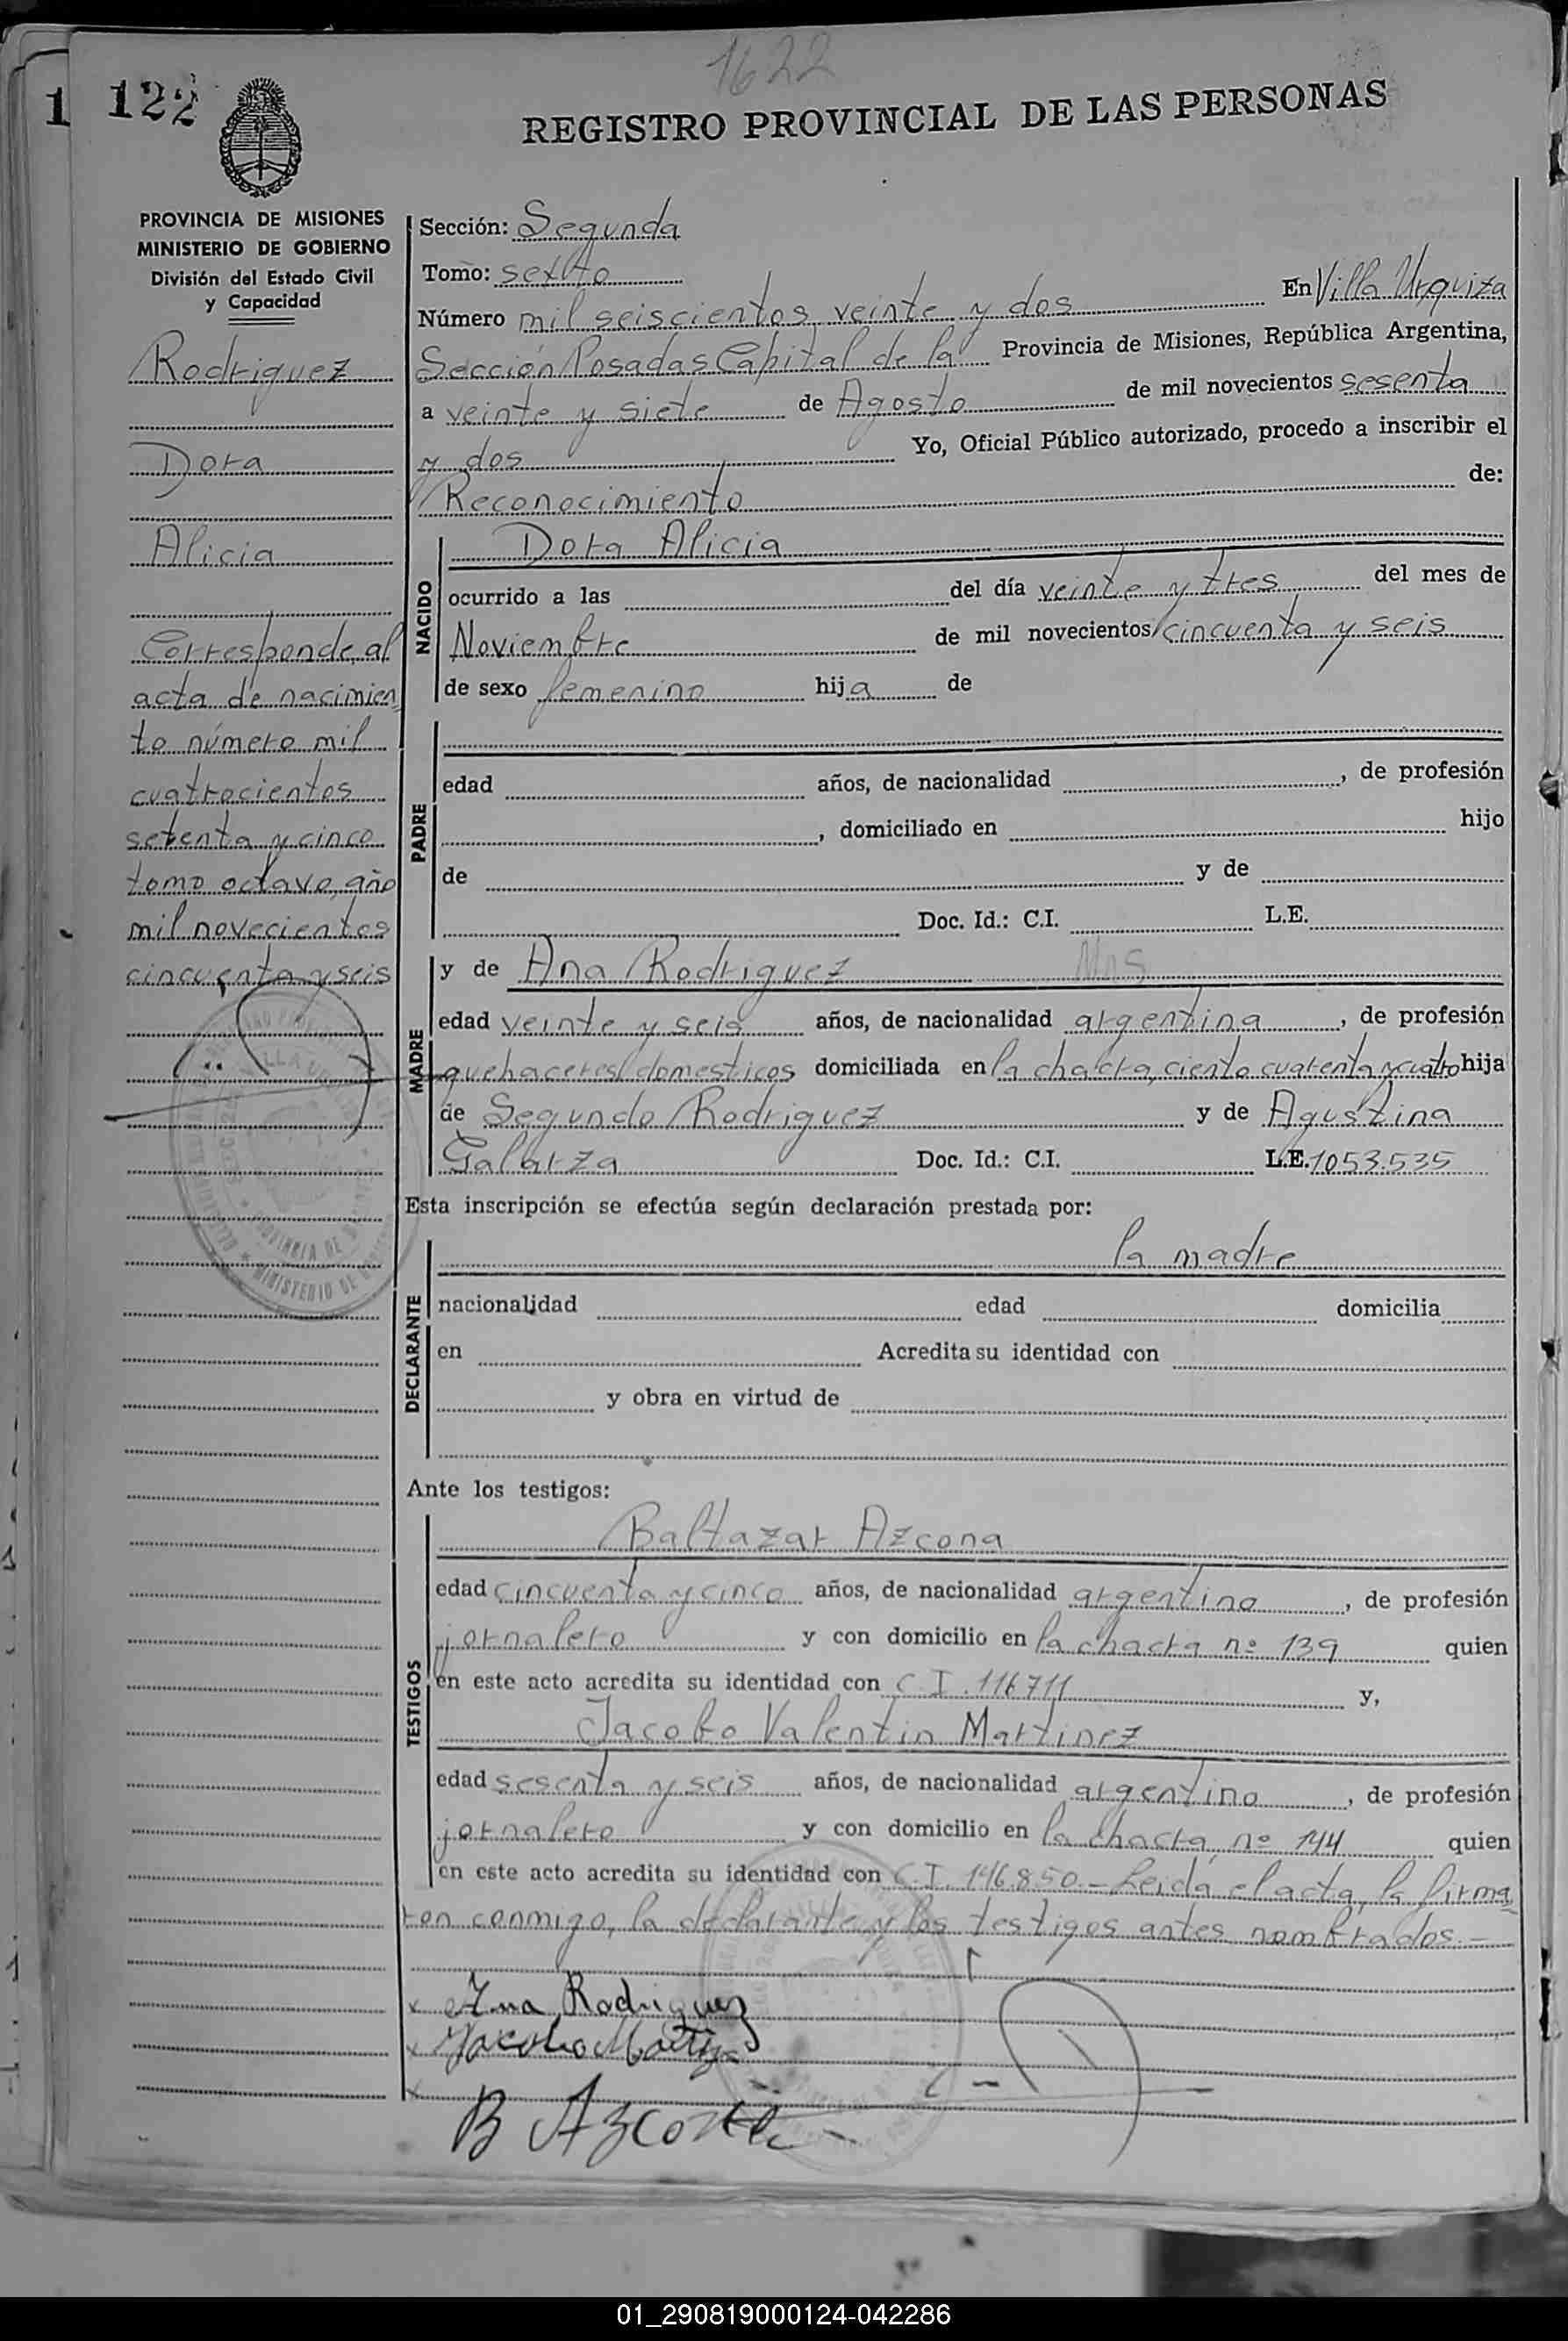 1622
1 122
REGISTRO PROVINCIAL DE LAS PERSONAS
PROVINCIA DE MISIONES
MINISTERIO DE GOBIERNO
División del Estado Civil
y Capacidad
Rodriguez
Dora
Alicia
Corresponde al
acta de nacimien
to número mil
cuatrocientos
setenta y cinco
tomo octavo, año
mil novecientos
cincuenta y seis
Sección: Segunda
Tomo: sexto
Número mil seiscientos veinte y dos En Villa Urquiza
Sección Posadas Capital de la Provincia de Misiones, República Argentina,
a veinte y siete de Agosto de mil novecientos sesenta
y dos Yo, Oficial Público autorizado, procedo a inscribir el
Reconocimiento de:
NACIDO
Dora Alicia
ocurrido a las del día veinte y tres del mes de
Noviembre de mil novecientos cincuenta y seis
de sexo femenino hija de
PADRE
edad años, de nacionalidad , de profesión
, domiciliado en hijo
de y de
Doc. Id.: C.I. L.E.
MADRE
y de Ana Rodriguez
edad veinte y seis años, de nacionalidad argentina, de profesión
quehaceres domesticos domiciliada en la chacra, ciento cuarenta y cuatro hija
de Segundo Rodriguez y de Agustina
Galarza Doc. Id.: C.I. L.E. 1053.535
Esta inscripción se efectúa según declaración prestada por:
DECLARANTE
la madre
nacionalidad edad domicilia
en Acredita su identidad con
y obra en virtud de
Ante los testigos:
TESTIGOS
Baltazar Azcona
edad cincuenta y cinco años, de nacionalidad argentino, de profesión
jornalero y con domicilio en la chacra nº 139 quien
en este acto acredita su identidad con C I. 116711 y,
Jacobo Valentin Martinez
edad sesenta y seis años, de nacionalidad argentino, de profesión
jornalero y con domicilio en la chacra, nº 144 quien
en este acto acredita su identidad con C.I. 146.850.- Leida el acta, la firma
ron conmigo, la declarante y los testigos antes nombrados.-
x Ana Rodriguez
x Jacobo Martinez
x
B Azcona
01_290819000124-042286